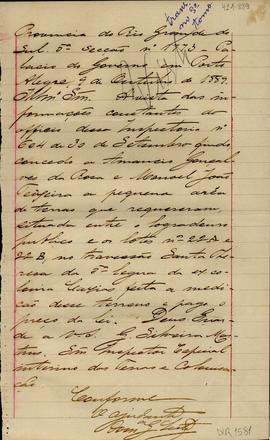 421-889
Provincia do Rio Grande do
Sul. 5ª Secção nº 1173 - Pa-
lacio do Governo em Porto
Alegre, 9 de Outubro de 1889.
Illmº Snr. Á vista das in-
formações constantes do
officio dessa Inspectoria nº
604 de 30 de Setembro findo
concedo a Amancio Gonçal-
ves da Rosa e Manoel João
Teixeira a pequena area
de terras que requereram,
situada entre o logradouro
publico e os lotes nº 22A e
22B, no travessão Santa The-
resa da 5ª legua da ex co-
lonia Caxias feita a medi-
ção desse terreno e pago o
preço da lei. Deus Guar-
de a V.S. G. Silveira Mar-
tins. Snr. Inspector Especial
interino das Terras e Colonisa-
ção
Conforme
O ajudante
DVR 1581